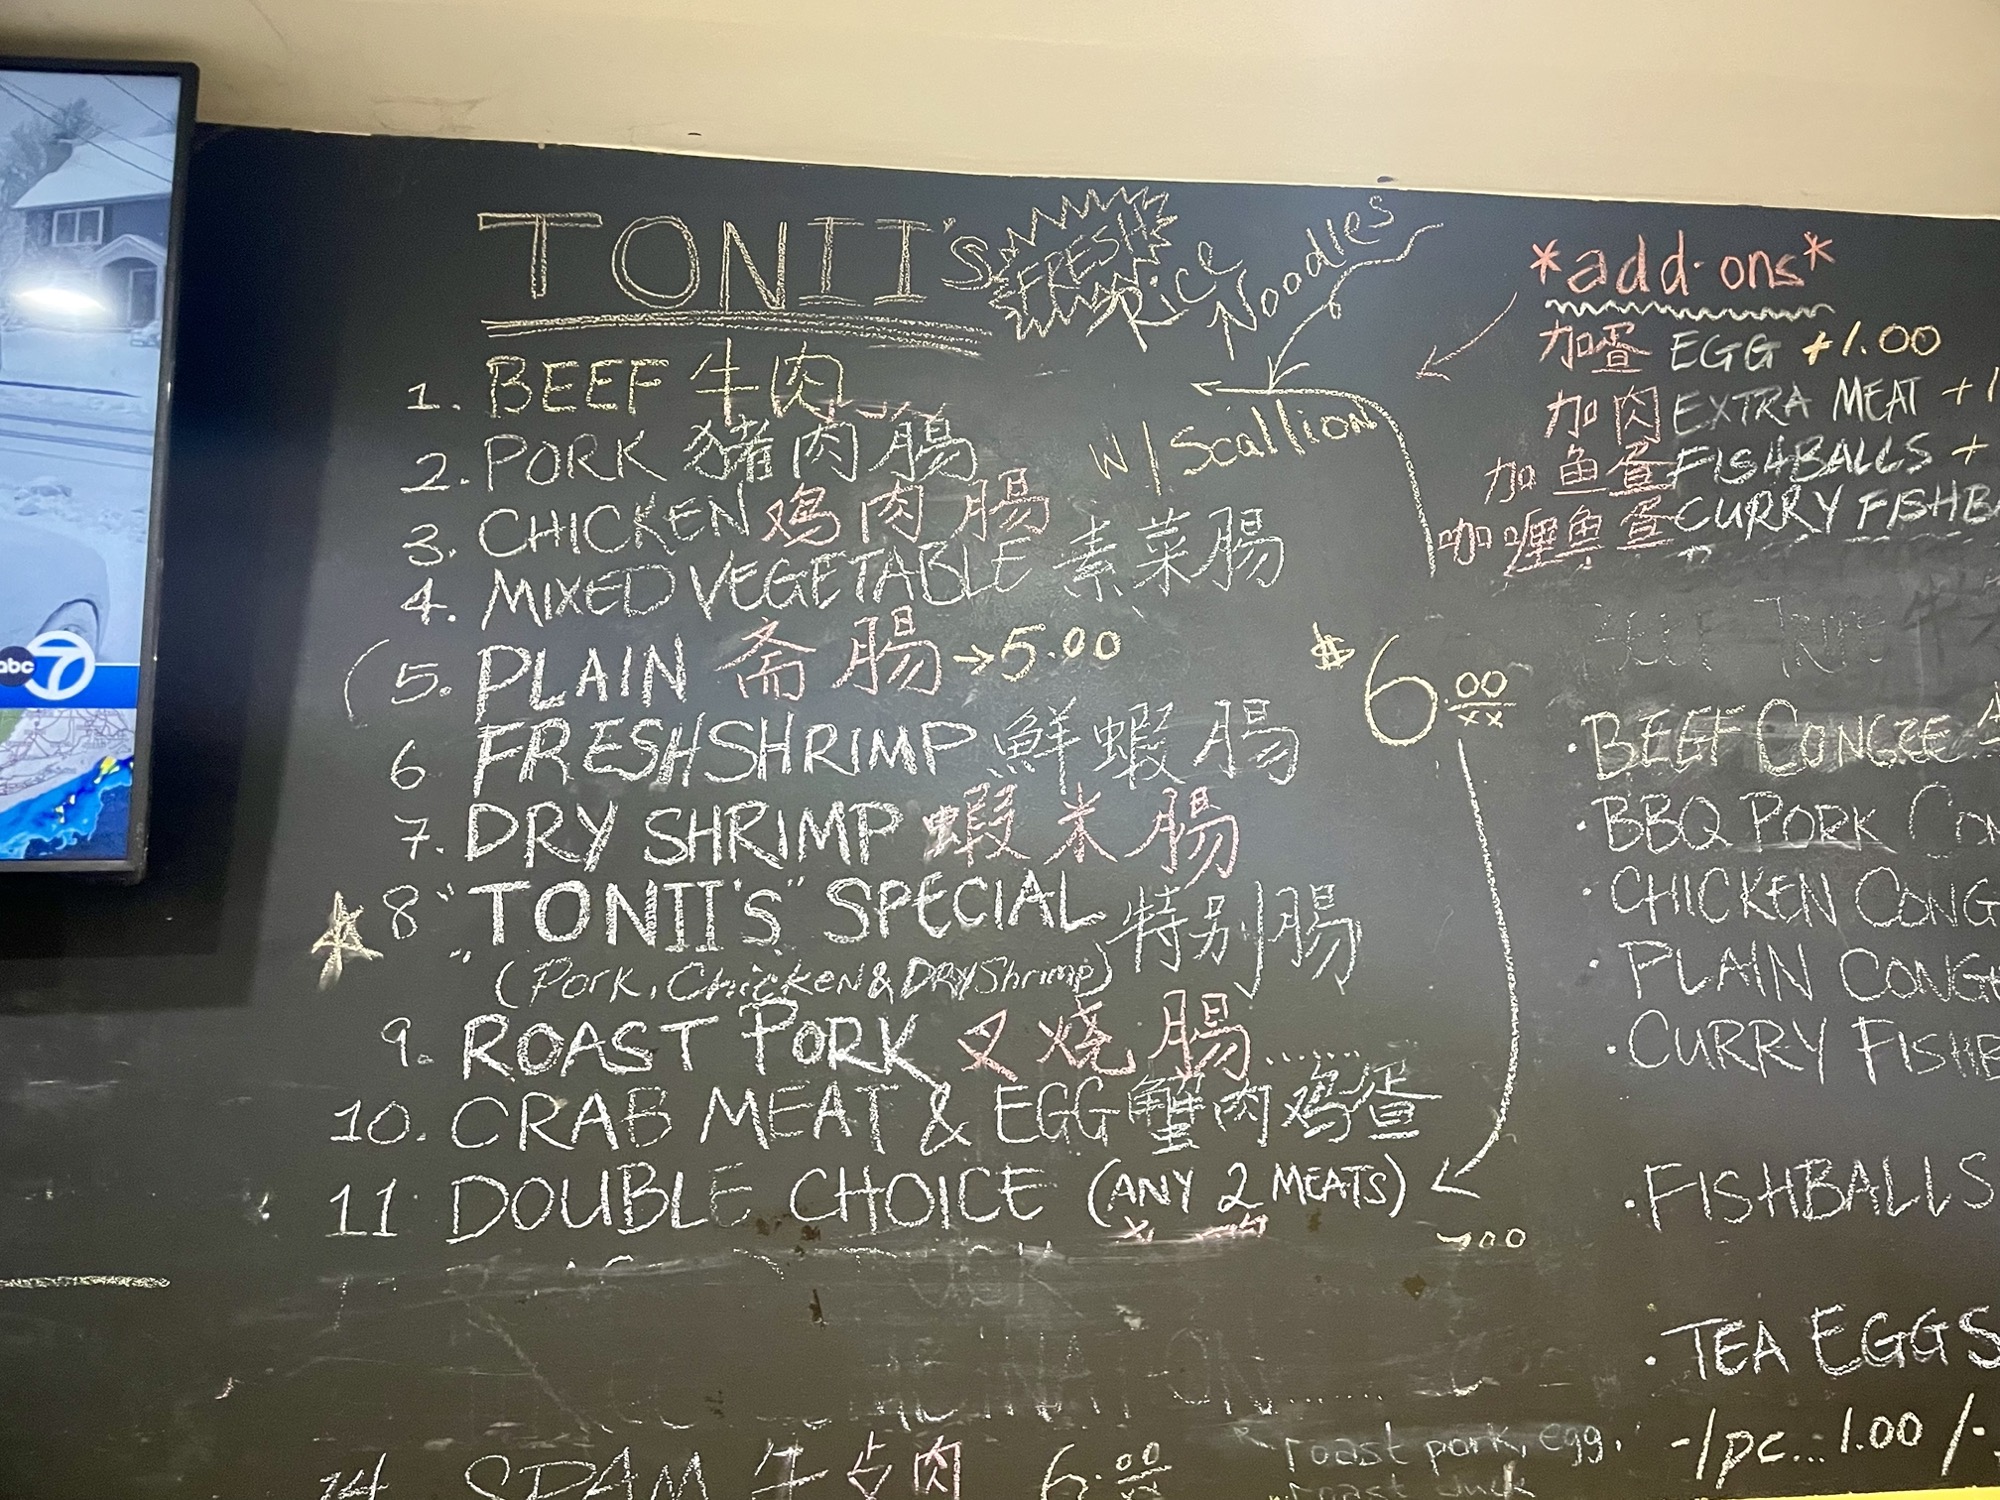 TONII's FRESH Rice Noodles
1. BEEF 牛肉
W/ Scallion
2. PORK 猪肉腸
3. CHICKEN 鸡肉腸
4. MIXED VEGETABLE 素菜腸
5. PLAIN 斋腸→5.00
6 FRESH SHRIMP 鮮蝦腸
7. DRY SHRIMP 蝦米腸
8 "TONII's" SPECIAL 特别腸
(Pork, Chicken & DRY Shrimp)
9. ROAST PORK 叉燒腸......
10. CRAB MEAT & EGG 蟹肉鸡蛋
11. DOUBLE CHOICE (ANY 2 MEATS)
$6.00
xx
14 SPAM 6.00
roast pork, egg,
roast duck
*add-ons*
加蛋 EGG +1.00
加肉 EXTRA MEAT +1
加鱼蛋 FISHBALLS +
咖喱鱼蛋 CURRY FISHBA
· BEEF CONGEE
· BBQ PORK CON
· CHICKEN CONG
· PLAIN CONGE
· CURRY FISHB
· FISHBALLS
· TEA EGGS
-1pc... 1.00 /
abc 7